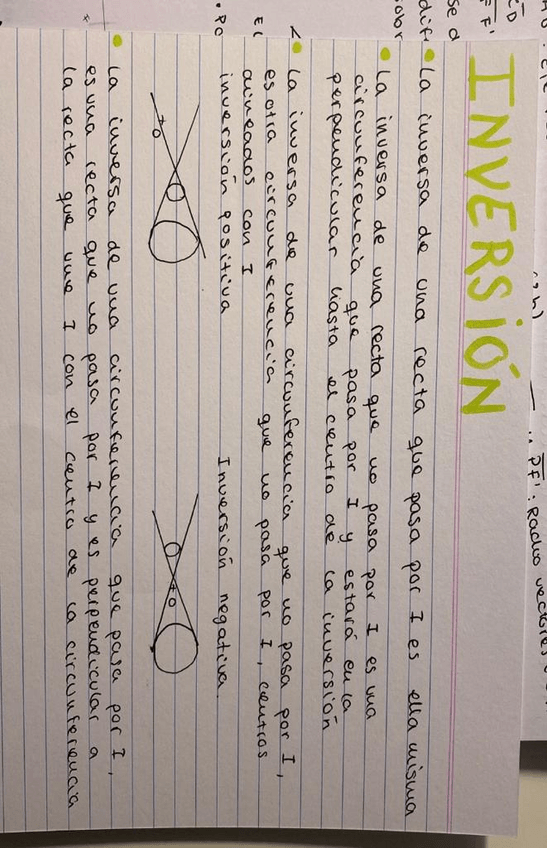 INVERSIÓN
• La inversa de una recta que pasa por I es ella misma
• La inversa de una recta que no pasa por I es una
circunferencia que pasa por I y estará en la
perpendicular hasta el centro de la inversión
• La inversa de una circunferencia que no pasa por I,
es otra circunferencia que no pasa por I, centros
alineados con I
inversión positiva
Inversión negativa.
• La inversa de una circunferencia que pasa por I,
es una recta que no pasa por I y es perpendicular a
la recta que une I con el centro de la circunferencia
PF': Radio vectores